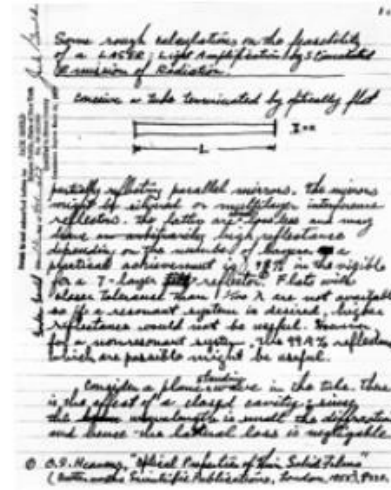 Some rough calculations on the feasibility
of a LASER: Light Amplification by Stimulated
Emission of Radiation.
conceive a tube terminated by optically flat
L
partially reflecting parallel mirrors. The mirrors
might be silvered or multilayer interference
reflectors. The latter are lossless and may
have an arbitrarily high reflectance
depending on the number of layers. A
practical achievement is 98% in the visible
for a 7-layer reflector. Flats with
closer tolerance than λ are not available
so if a resonant system is desired, higher
reflectance would not be useful. However
for a nonresonant system, the 99.9% reflectors
which are possible might be useful.
Consider a plane standing wave in the tube. There
is the effect of a closed cavity; since
the wavelength is small the diffraction
and hence the lateral loss is negligable
O.S. Heavens, "Optical Properties of Thin Solid Films"
(Butterworths Scientific Publications, London, 1955)